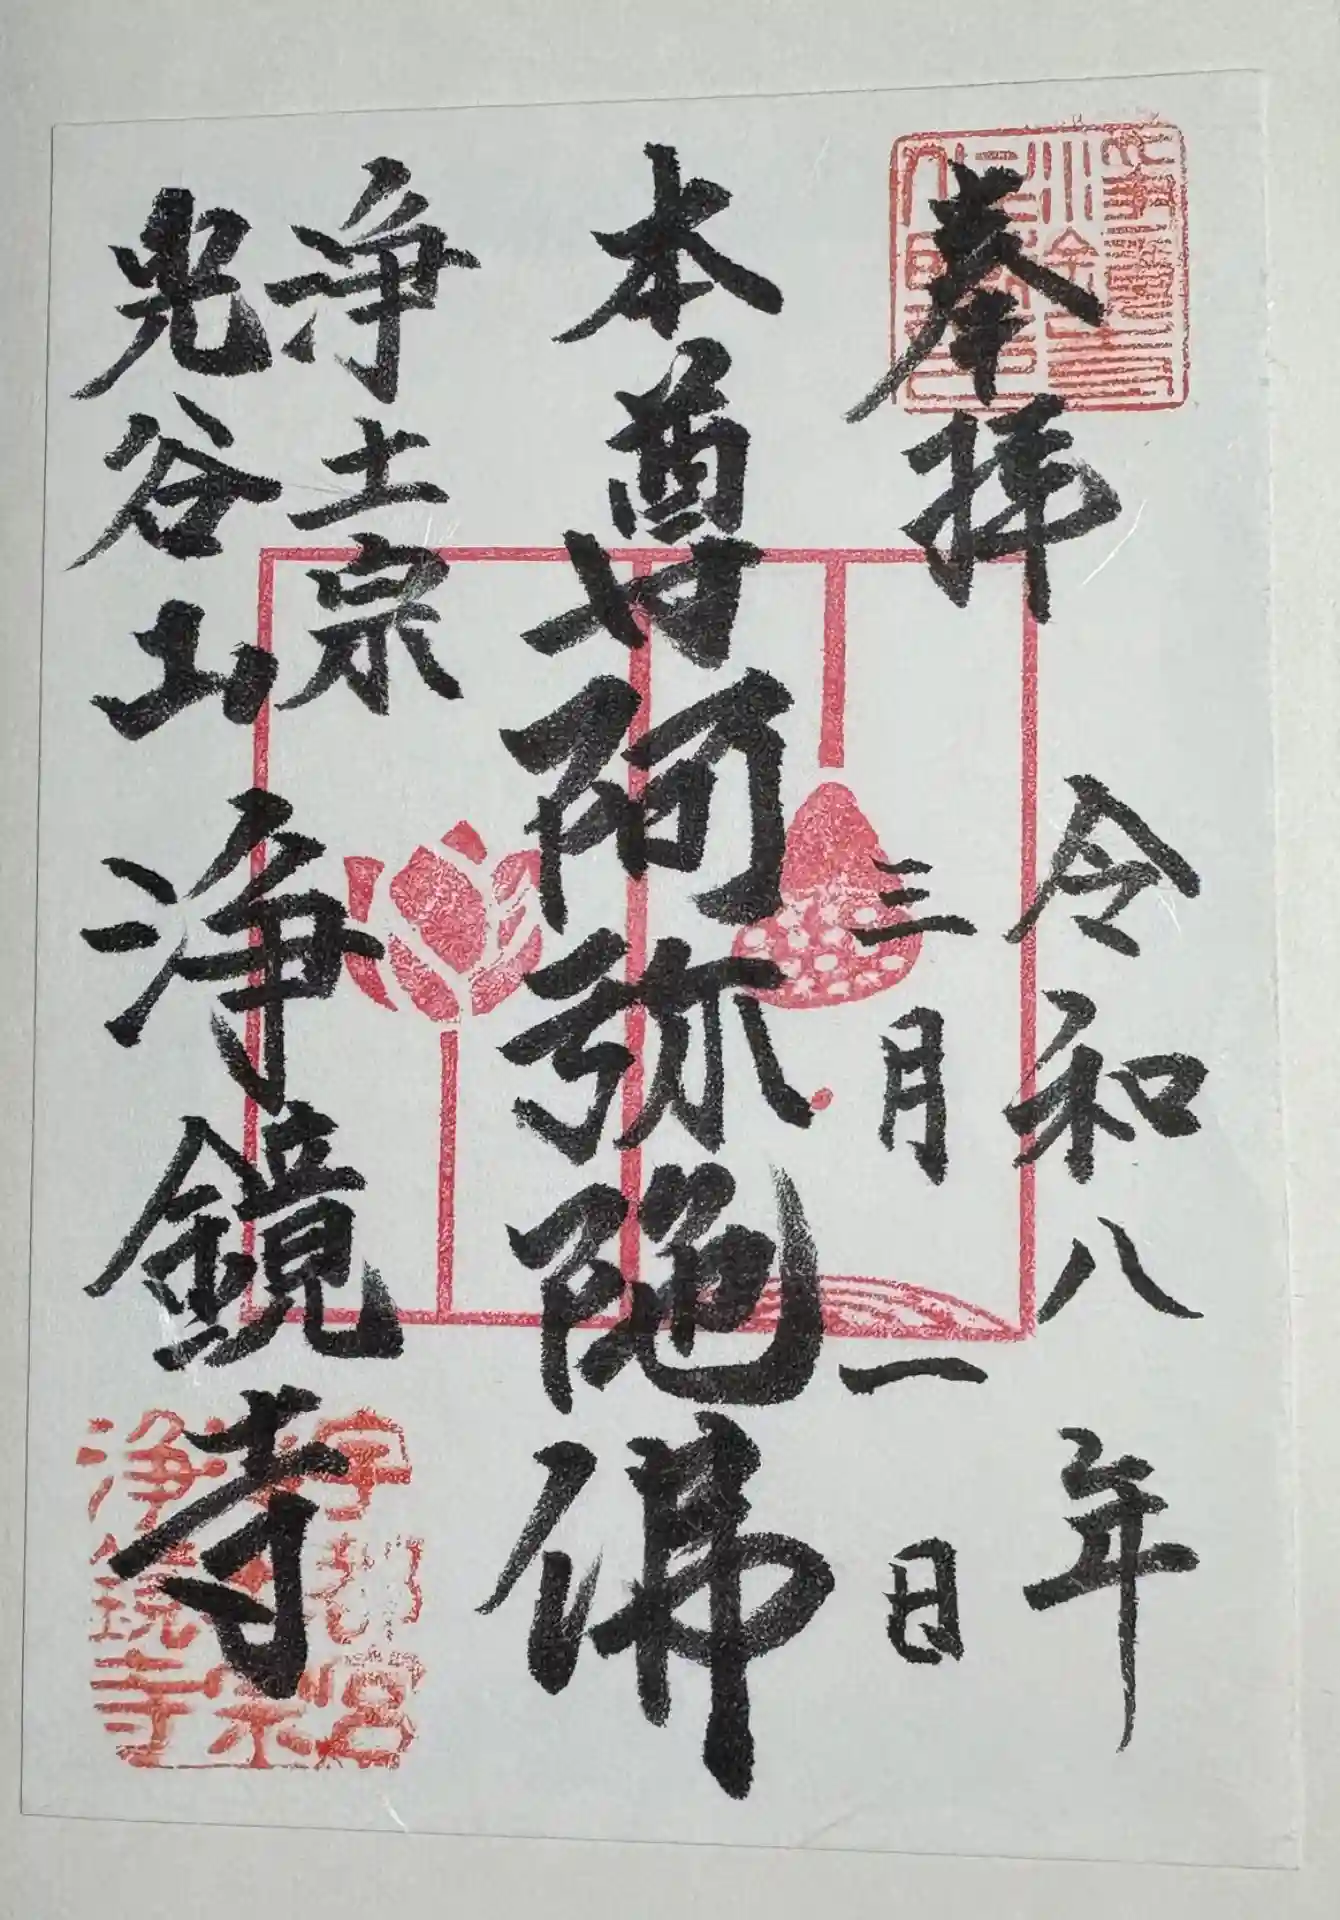 奉拝
令和八年
三月一日
本尊阿弥陀佛
浄土宗
光谷山浄鏡寺
宇都宮
浄土宗
浄鏡寺